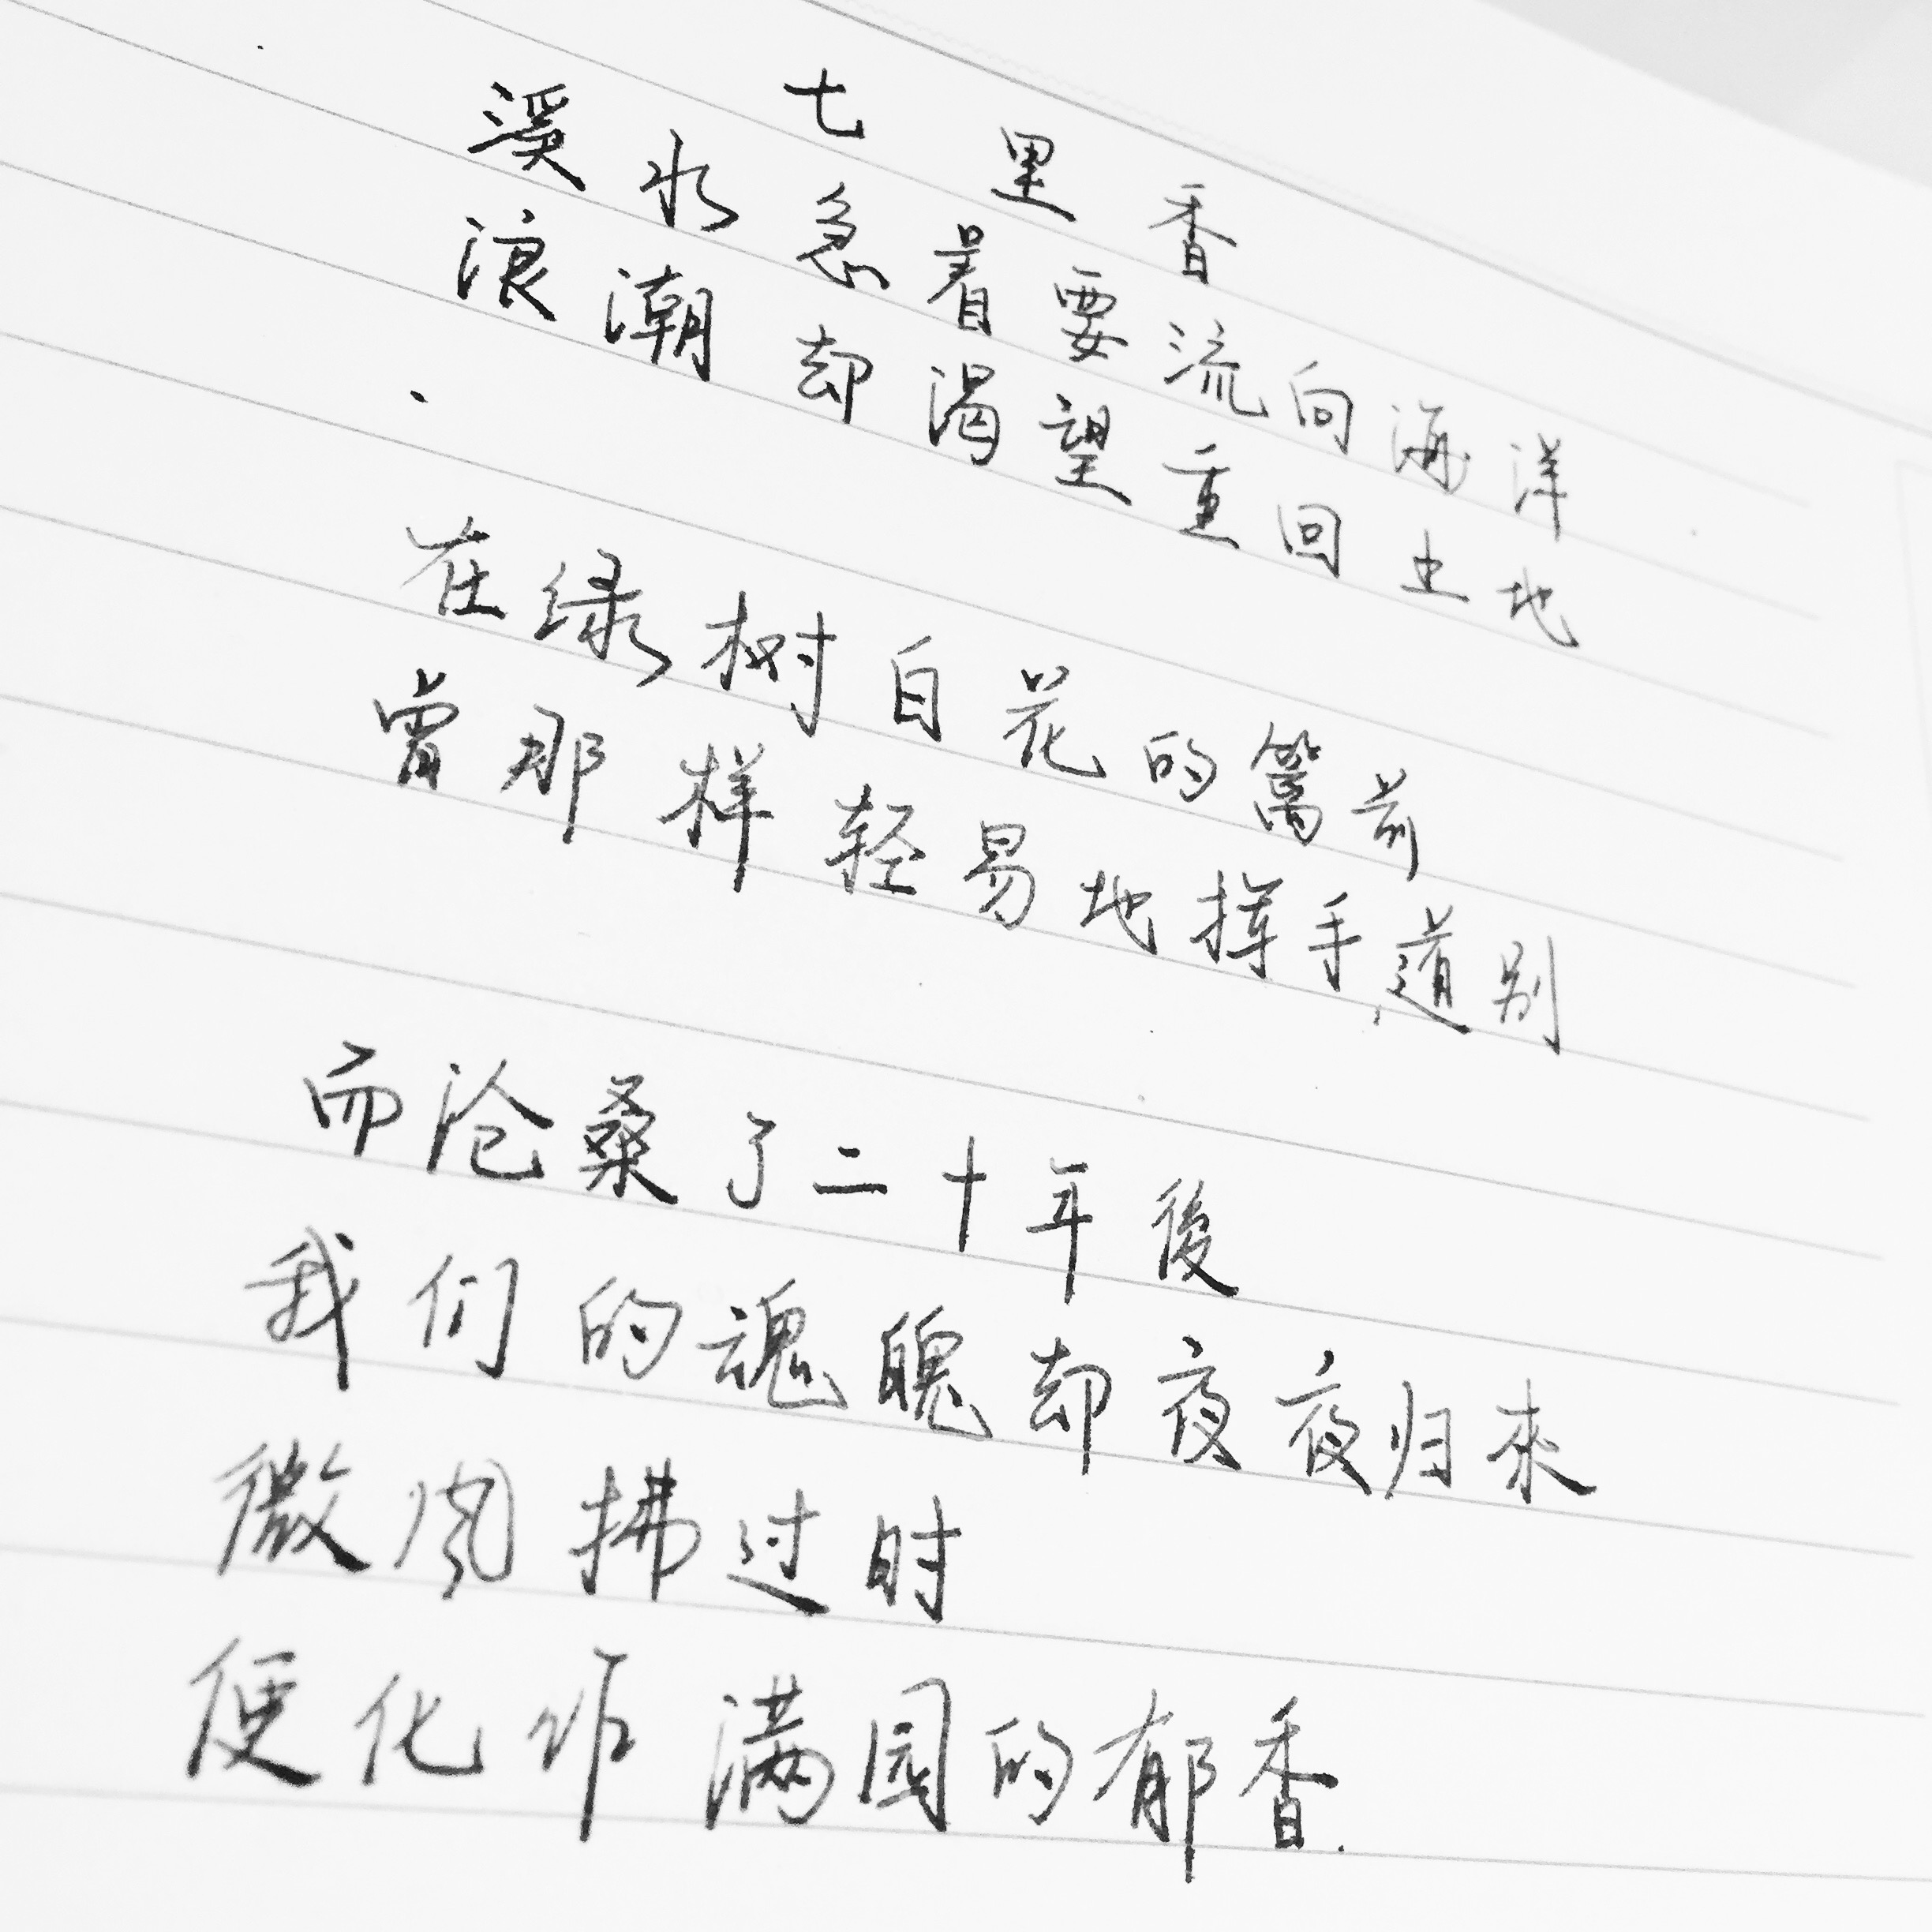 七里香
溪水急着要流向海洋
浪潮却渴望重回土地
在绿树白花的篱前
曾那样轻易地挥手道别
而沧桑了二十年後
我们的魂魄却夜夜归來
微风拂过时
便化作满园的郁香.